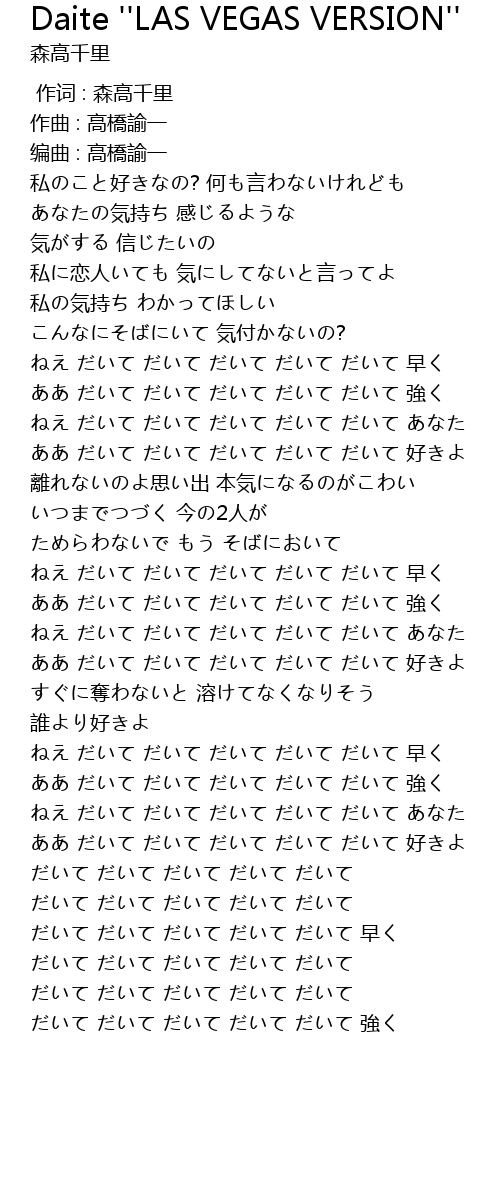 Daite ''LAS VEGAS VERSION''
森高千里
作词 : 森高千里
作曲 : 高橋諭一
编曲 : 高橋諭一
私のこと好きなの? 何も言わないけれども
あなたの気持ち 感じるような
気がする 信じたいの
私に恋人いても 気にしてないと言ってよ
私の気持ち わかってほしい
こんなにそばにいて 気付かないの?
ねえ だいて だいて だいて だいて だいて 早く
ああ だいて だいて だいて だいて だいて 強く
ねえ だいて だいて だいて だいて だいて あなた
ああ だいて だいて だいて だいて だいて 好きよ
離れないのよ思い出 本気になるのがこわい
いつまでつづく 今の2人が
ためらわないで もう そばにおいて
ねえ だいて だいて だいて だいて だいて 早く
ああ だいて だいて だいて だいて だいて 強く
ねえ だいて だいて だいて だいて だいて あなた
ああ だいて だいて だいて だいて だいて 好きよ
すぐに奪わないと 溶けてなくなりそう
誰より好きよ
ねえ だいて だいて だいて だいて だいて 早く
ああ だいて だいて だいて だいて だいて 強く
ねえ だいて だいて だいて だいて だいて あなた
ああ だいて だいて だいて だいて だいて 好きよ
だいて だいて だいて だいて だいて
だいて だいて だいて だいて だいて
だいて だいて だいて だいて だいて 早く
だいて だいて だいて だいて だいて
だいて だいて だいて だいて だいて
だいて だいて だいて だいて だいて 強く